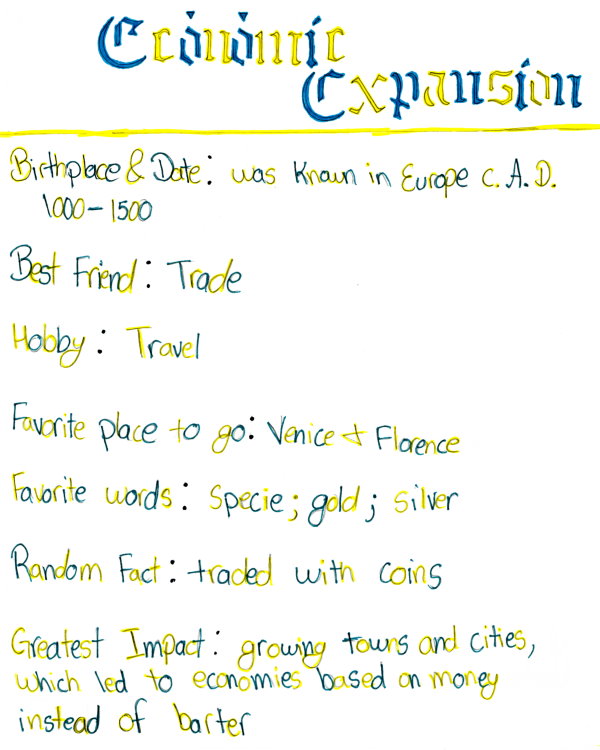 Economic
Expansion
Birthplace & Date: was known in Europe c. A.D.
1000-1500
Best Friend: Trade
Hobby: Travel
Favorite place to go: Venice + Florence
Favorite words: Specie; gold; silver
Random Fact: traded with coins
Greatest Impact: growing towns and cities,
which led to economies based on money
instead of barter